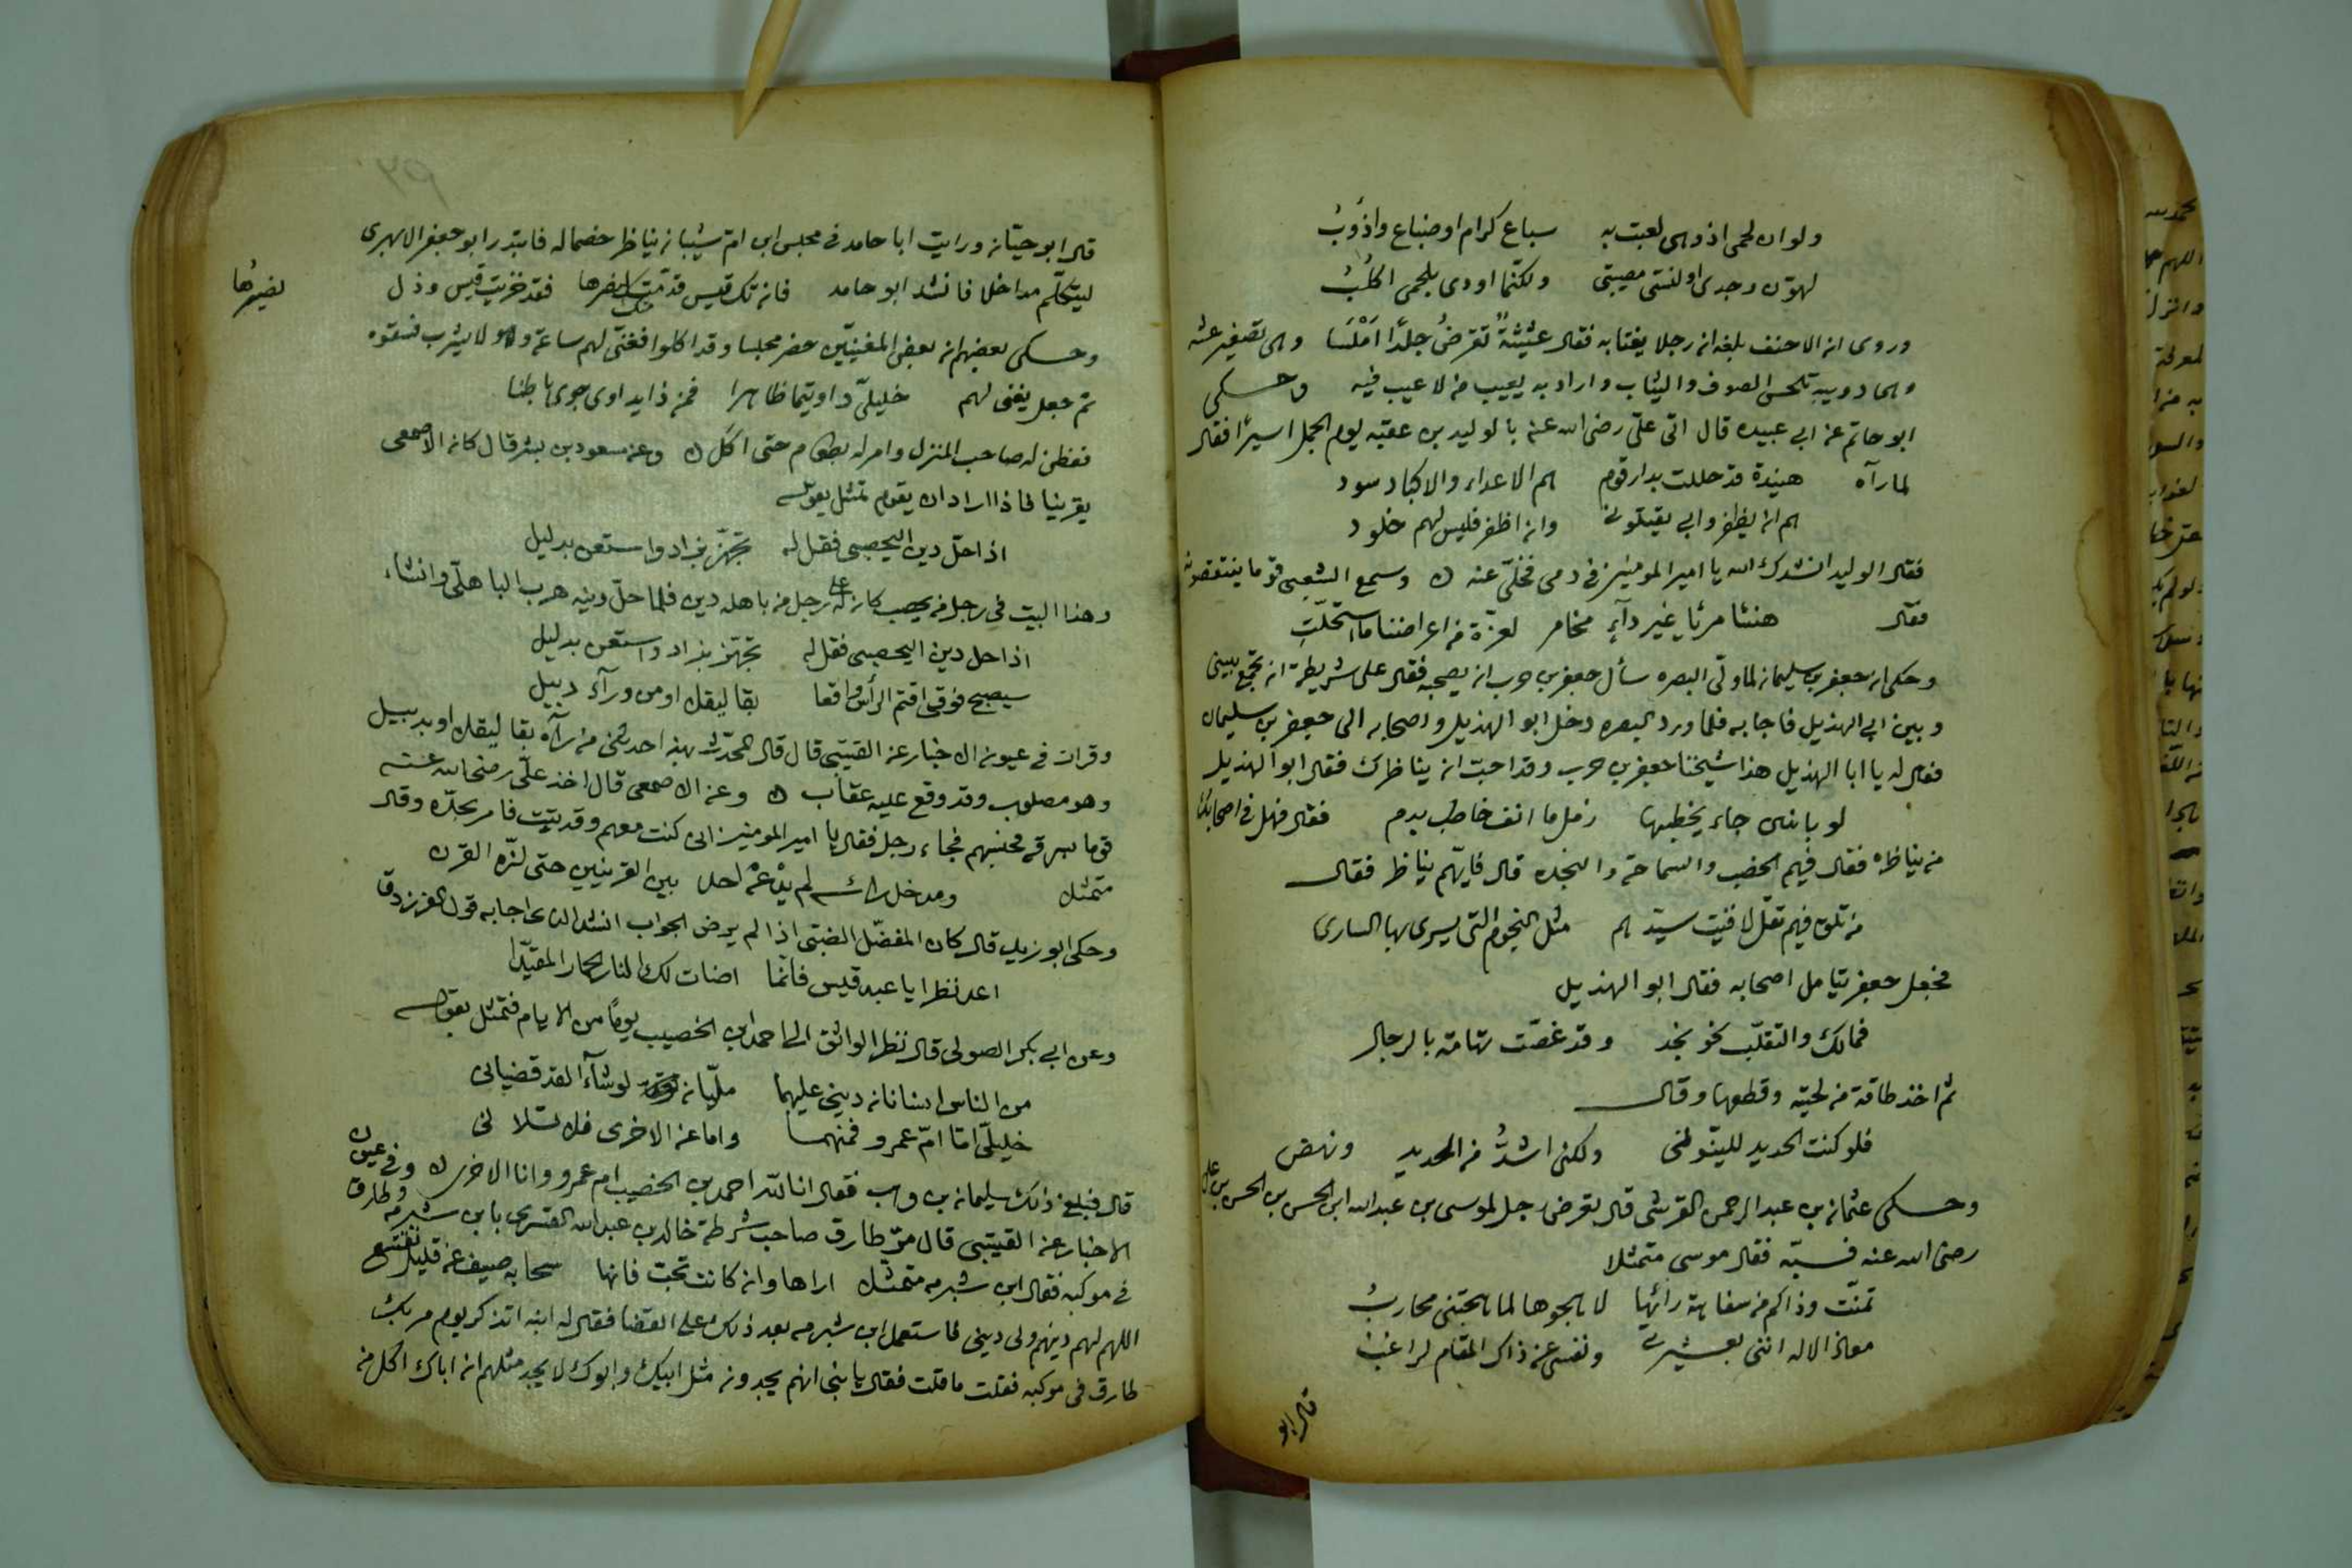 ولو ان لحمى اذ وهى لعبت به سباع كرام او ضباع واذؤب
لهوّن وجدى او لنسّى مصيبتى ولكنّما اودى بلحمى اكلب
وروى ان الاحنف بلغه ان رجلا يغتابه فقال عثيثة تقرض جلدا املسا وهى تصغير عثه
وهى دويبه تلحس الصوف والثياب واراد به يعيب من لا عيب فيه وحكى
ابو حاتم عن ابى عبيده قال اتى علىّ رضى الله عنه بالوليد بن عقبه يوم الجمل اسيرا فقال
لما رآه هنيدة قد حللت بدار قوم هم الاعداء والاكباد سود
هم ان يظفروا بى يقتلونى وان اظفر فليس لهم خلود
فقال الوليد انشدك الله يا امير المومنين فى دمى فخلّى عنه ه وسمع الشعبى قوما ينتقصونه
فقال هنئا مرئا غير دآء مخامر لعزة من اعراضنا ما استحلّت
وحكى ان جعفر بن سليمان لما ولّى البصره سأل جعفر بن حرب ان يصحبه فقال على شريطة ان تجمع بينى
وبين ابى الهذيل فاجابه فلما ورد البصره دخل ابو الهذيل واصحابه الى جعفر بن سليمان
فقال له يا ابا الهذيل هذا شيخنا جعفر بن حرب وقد احبّ ان يناظرك فقال ابو الهذيل
لو بابنين جاء يخطبها زمل ما انف خاطب بدم فقال فهل فى اصحابك
من يناظره فقال فيهم الخصب والسماحة والنجده قال فايّهم يناظر فقال
من تلق فيهم تقل لاقيت سيّدهم مثل النجوم التى يسرى بها السارى
فجعل جعفر يتامل اصحابه فقال ابو الهذيل
فمالك والتقلّب نحو نجد وقد غصّت تهامة بالرجال
ثم اخذ طاقة من لحيته وقطعها وقال
فلو كنت الحديد للينّونى ولكنى اشدّ من الحديد ونهض
وحكى عثمان بن عبد الرحمن القرشى قال تعرض رجل لموسى بن عبد الله ابن الحسن بن الحسن بن على
رضى الله عنه فسبّه فقال موسى متمثلا
تمنّت وذاكم من سفاهة رائها لاهجوها لما هجتنى محارب
معاذ الاله اننى بعشيرتى ونفسى عن ذاك المقام لراغب
قال ابو
قال ابو حيّان ورايت ابا حامد فى مجلس ابن ام شيبان يناظر خصما له فابتدر ابو جعفر الابهرى
ليتكلّم مداخلا فانشد ابو حامد فان تك قيس قدّمتك لنصرها فقد خزيت قيس وذل نصيرها
وحكى بعضهم ان بعض المغنيّين حضر مجلسا وقد اكلوا فغنّى لهم ساعة وهو لا يشرب فسقوه
ثم جعل يغنى لهم خليلىّ داويتما ظاهرا فمن ذا يداوى جوى باطنا
ففطن له صاحب المنزل وامر له بطعام حتى اكل ه وعن مسعود بن بشر قال كان الاصمعى
يقرينا فاذا اراد ان يقوم تمثل بقوله
اذا حلّ دين اليحصبى فقل له تجهّز بزاد واستعن بدليل
وهذا البيت فى رجل من يحصب كان له على رجل من باهله دين فلما حلّ دينه هرب الباهلى وانشاء
اذا حل دين اليحصبى فقل له تجهّز بزاد واستعن بدليل
سيصبح فوقى اقتم الرأس واقعا بقاليقلا او من ورآء دبيل
وقرات فى عيون الاخبار عن القتيبى قال قال المحدّث بهذا حدثنى من رآه بقاليقلا او بدبيل
وهو مصلوب وقد وقع عليه عقاب ه وعن الاصمعى قال اخذ علىّ رضى الله عنه
قوما بسرقه فحبسهم فجاء رجل فقال يا امير المومنين انى كنت معهم وقد تبت فامر بحدّه وقال
متمثل ومدخل راسه لم يدعه احد بين القرينين حتى لزّه القرن
وحكى ابو زيد قال كان المفضّل الضبىّ اذا لم يرض الجواب انشد الذى اجابه قول الفرزدق
اعد نظرا يا عبد قيس فانّما اضات لك النار الحمار المقيّدا
وعن ابى بكر الصولى قال نظر الواثق الى احمد ابن الخصيب يوما من الايام فتمثل بقوله
من الناس انسانان دينى عليهما مليّان لو شآءا لقد قضيانى
خليلىّ امّا امّ عمرو فمنهما واما عن الاخرى فلا تسلانى
قال فبلغ ذلك سليمان بن وهب فقال انا لله احمد بن الخصيب ام عمرو وانا الاخرى ه وفى عيون
الاخبار عن القتيبى قال مرّ طارق صاحب شرطة خالد بن عبد الله القسرى بابن شبرمه وطارق
فى موكبه فقال ابن شبرمه متمثل اراها وان كانت تحبّ فانها سحابه صيف عن قليل تقشع
اللهم لهم دينهم ولى دينى فاستعمل ابن شبرمه بعد ذلك على القضا فقال له ابنه اتذكر يوم مرّ بك
طارق فى موكبه فقلت ما قلت فقال يا بنى انهم يجدون مثل ابيك وابوك لا يجد مثلهم ان اباك اكل من